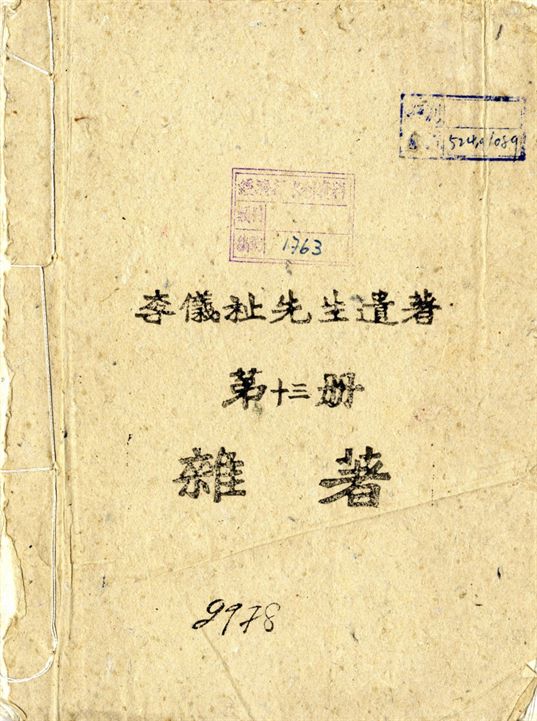 524.9/089
1763
李儀祉先生遺著
第十三册
雜著
9978